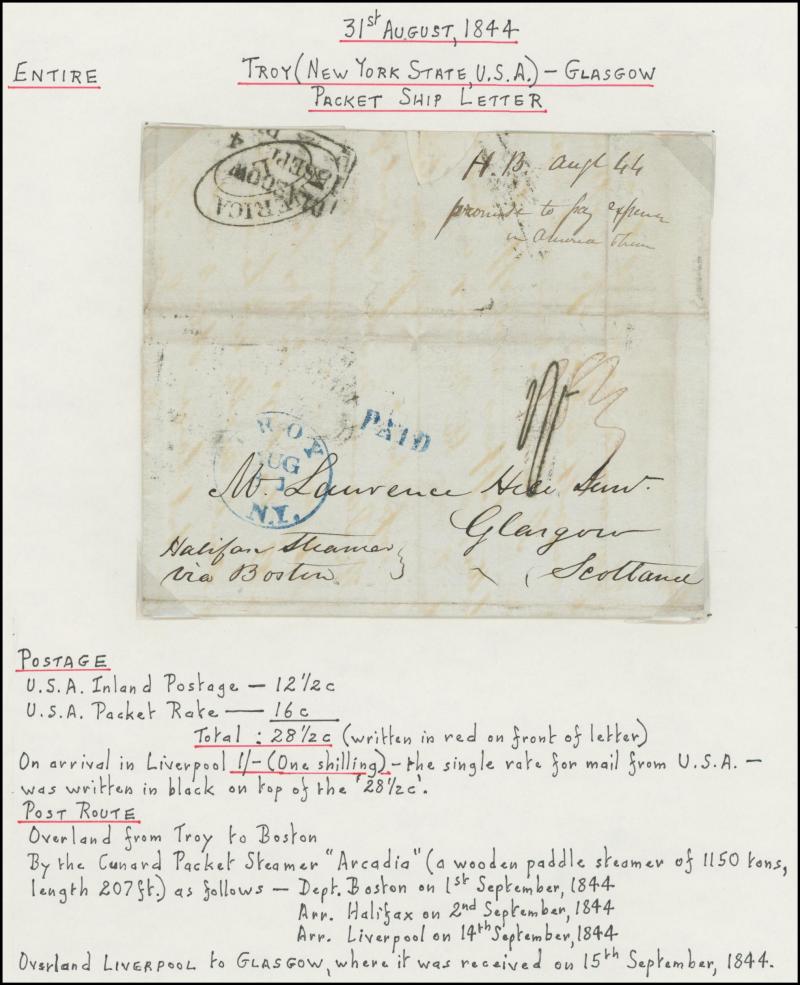 31st AUGUST, 1844
ENTIRE
TROY (NEW YORK STATE, U.S.A.) - GLASGOW
PACKET SHIP LETTER
AMERICA
GLASGOW
SEPT
H.B. augt 44
promise to pay expense
in america
PAID
TROY
AUG
N.Y.
Mr. Laurence Hill Junr.
Glasgow
Scotland
Halifax Steamer
via Boston
POSTAGE
U.S.A. Inland Postage — 12 1/2c
U.S.A. Packet Rate — 16c
Total : 28 1/2c (written in red on front of letter)
On arrival in Liverpool 1/- (One shilling) - the single rate for mail from U.S.A. —
was written in black on top of the '28 1/2c'.
POST ROUTE
Overland from Troy to Boston
By the Cunard Packet Steamer "Arcadia" (a wooden paddle steamer of 1150 tons,
length 207ft.) as follows — Dept. Boston on 1st September, 1844
Arr. Halifax on 2nd September, 1844
Arr. Liverpool on 14th September, 1844
Overland LIVERPOOL to GLASGOW, where it was received on 15th September, 1844.